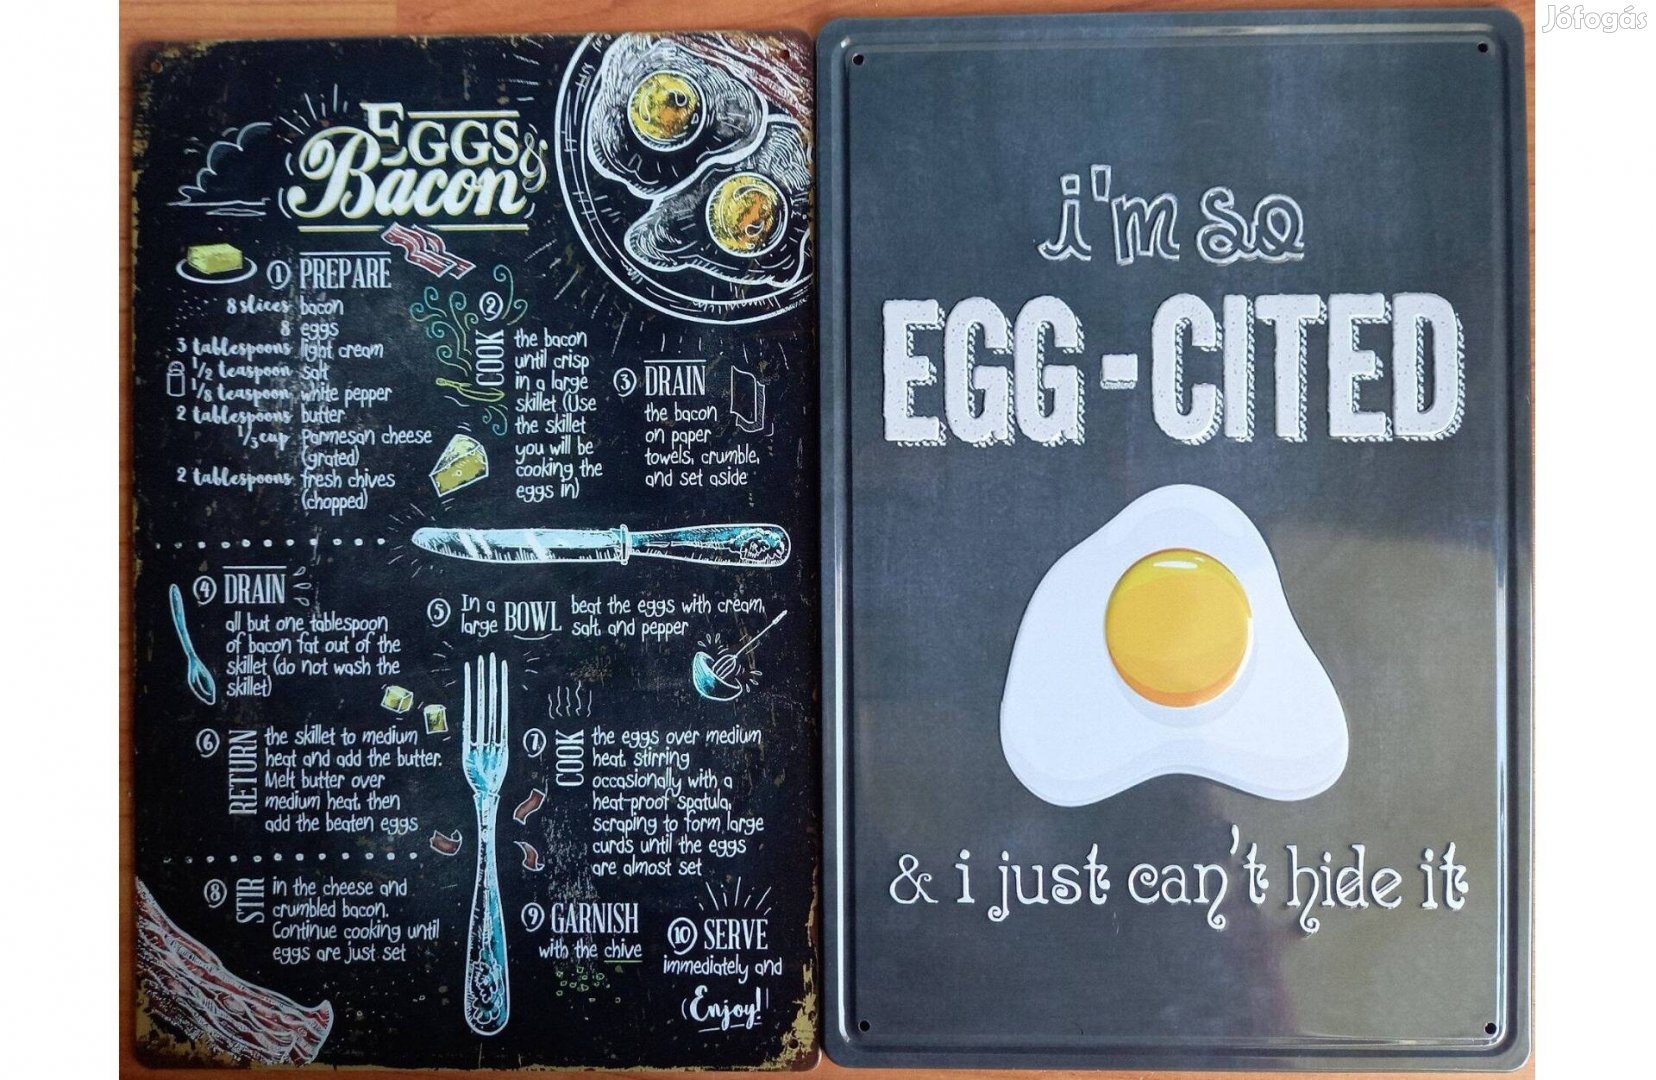 Jófogás
EGGS &
Bacon
1 PREPARE
8 slices bacon
8 eggs
3 tablespoons light cream
1/2 teaspoon salt
1/8 teaspoon white pepper
2 tablespoons butter
1/3 cup Parmesan cheese
(grated)
2 tablespoons fresh chives
(chopped)
2
COOK
the bacon
until crisp
in a large
skillet (Use
the skillet
you will be
cooking the
eggs in)
3 DRAIN
the bacon
on paper
towels, crumble,
and set aside
4 DRAIN
all but one tablespoon
of bacon fat out of the
skillet (do not wash the
skillet)
5 In a large BOWL beat the eggs with cream,
salt, and pepper
6 RETURN
the skillet to medium
heat and add the butter.
Melt butter over
medium heat, then
add the beaten eggs
7 COOK
the eggs over medium
heat, stirring
occasionally with a
heat-proof spatula,
scraping to form large
curds until the eggs
are almost set
8 STIR
in the cheese and
crumbled bacon.
Continue cooking until
eggs are just set
9 GARNISH
with the chive
10 SERVE
immediately and
(Enjoy!)
i'm so
EGG-CITED
& i just can't hide it